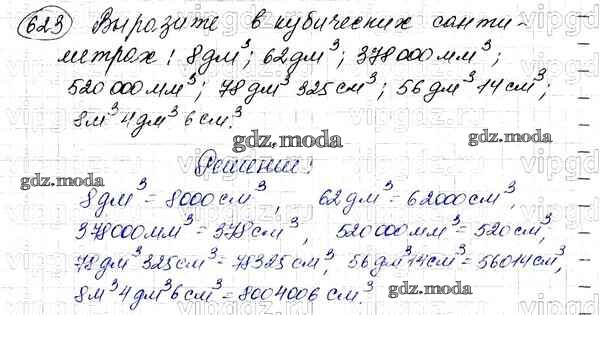 623 Выразите в кубических санти-
метрах: 8дм³; 62дм³; 378000мм³;
520 000мм³; 78дм³ 325см³; 56дм³14см³;
8м³4дм³6см³.
gdz.moda
Решение:
gdz.moda
gdz.moda
8дм³=8000см³, 62дм³=62000см³,
378000мм³=378см³, 520000мм³=520см³,
78дм³325см³=78325см³, 56дм³14см³=56014см³,
8м³4дм³6см³=8004006 см³.
gdz.moda
vipgdz